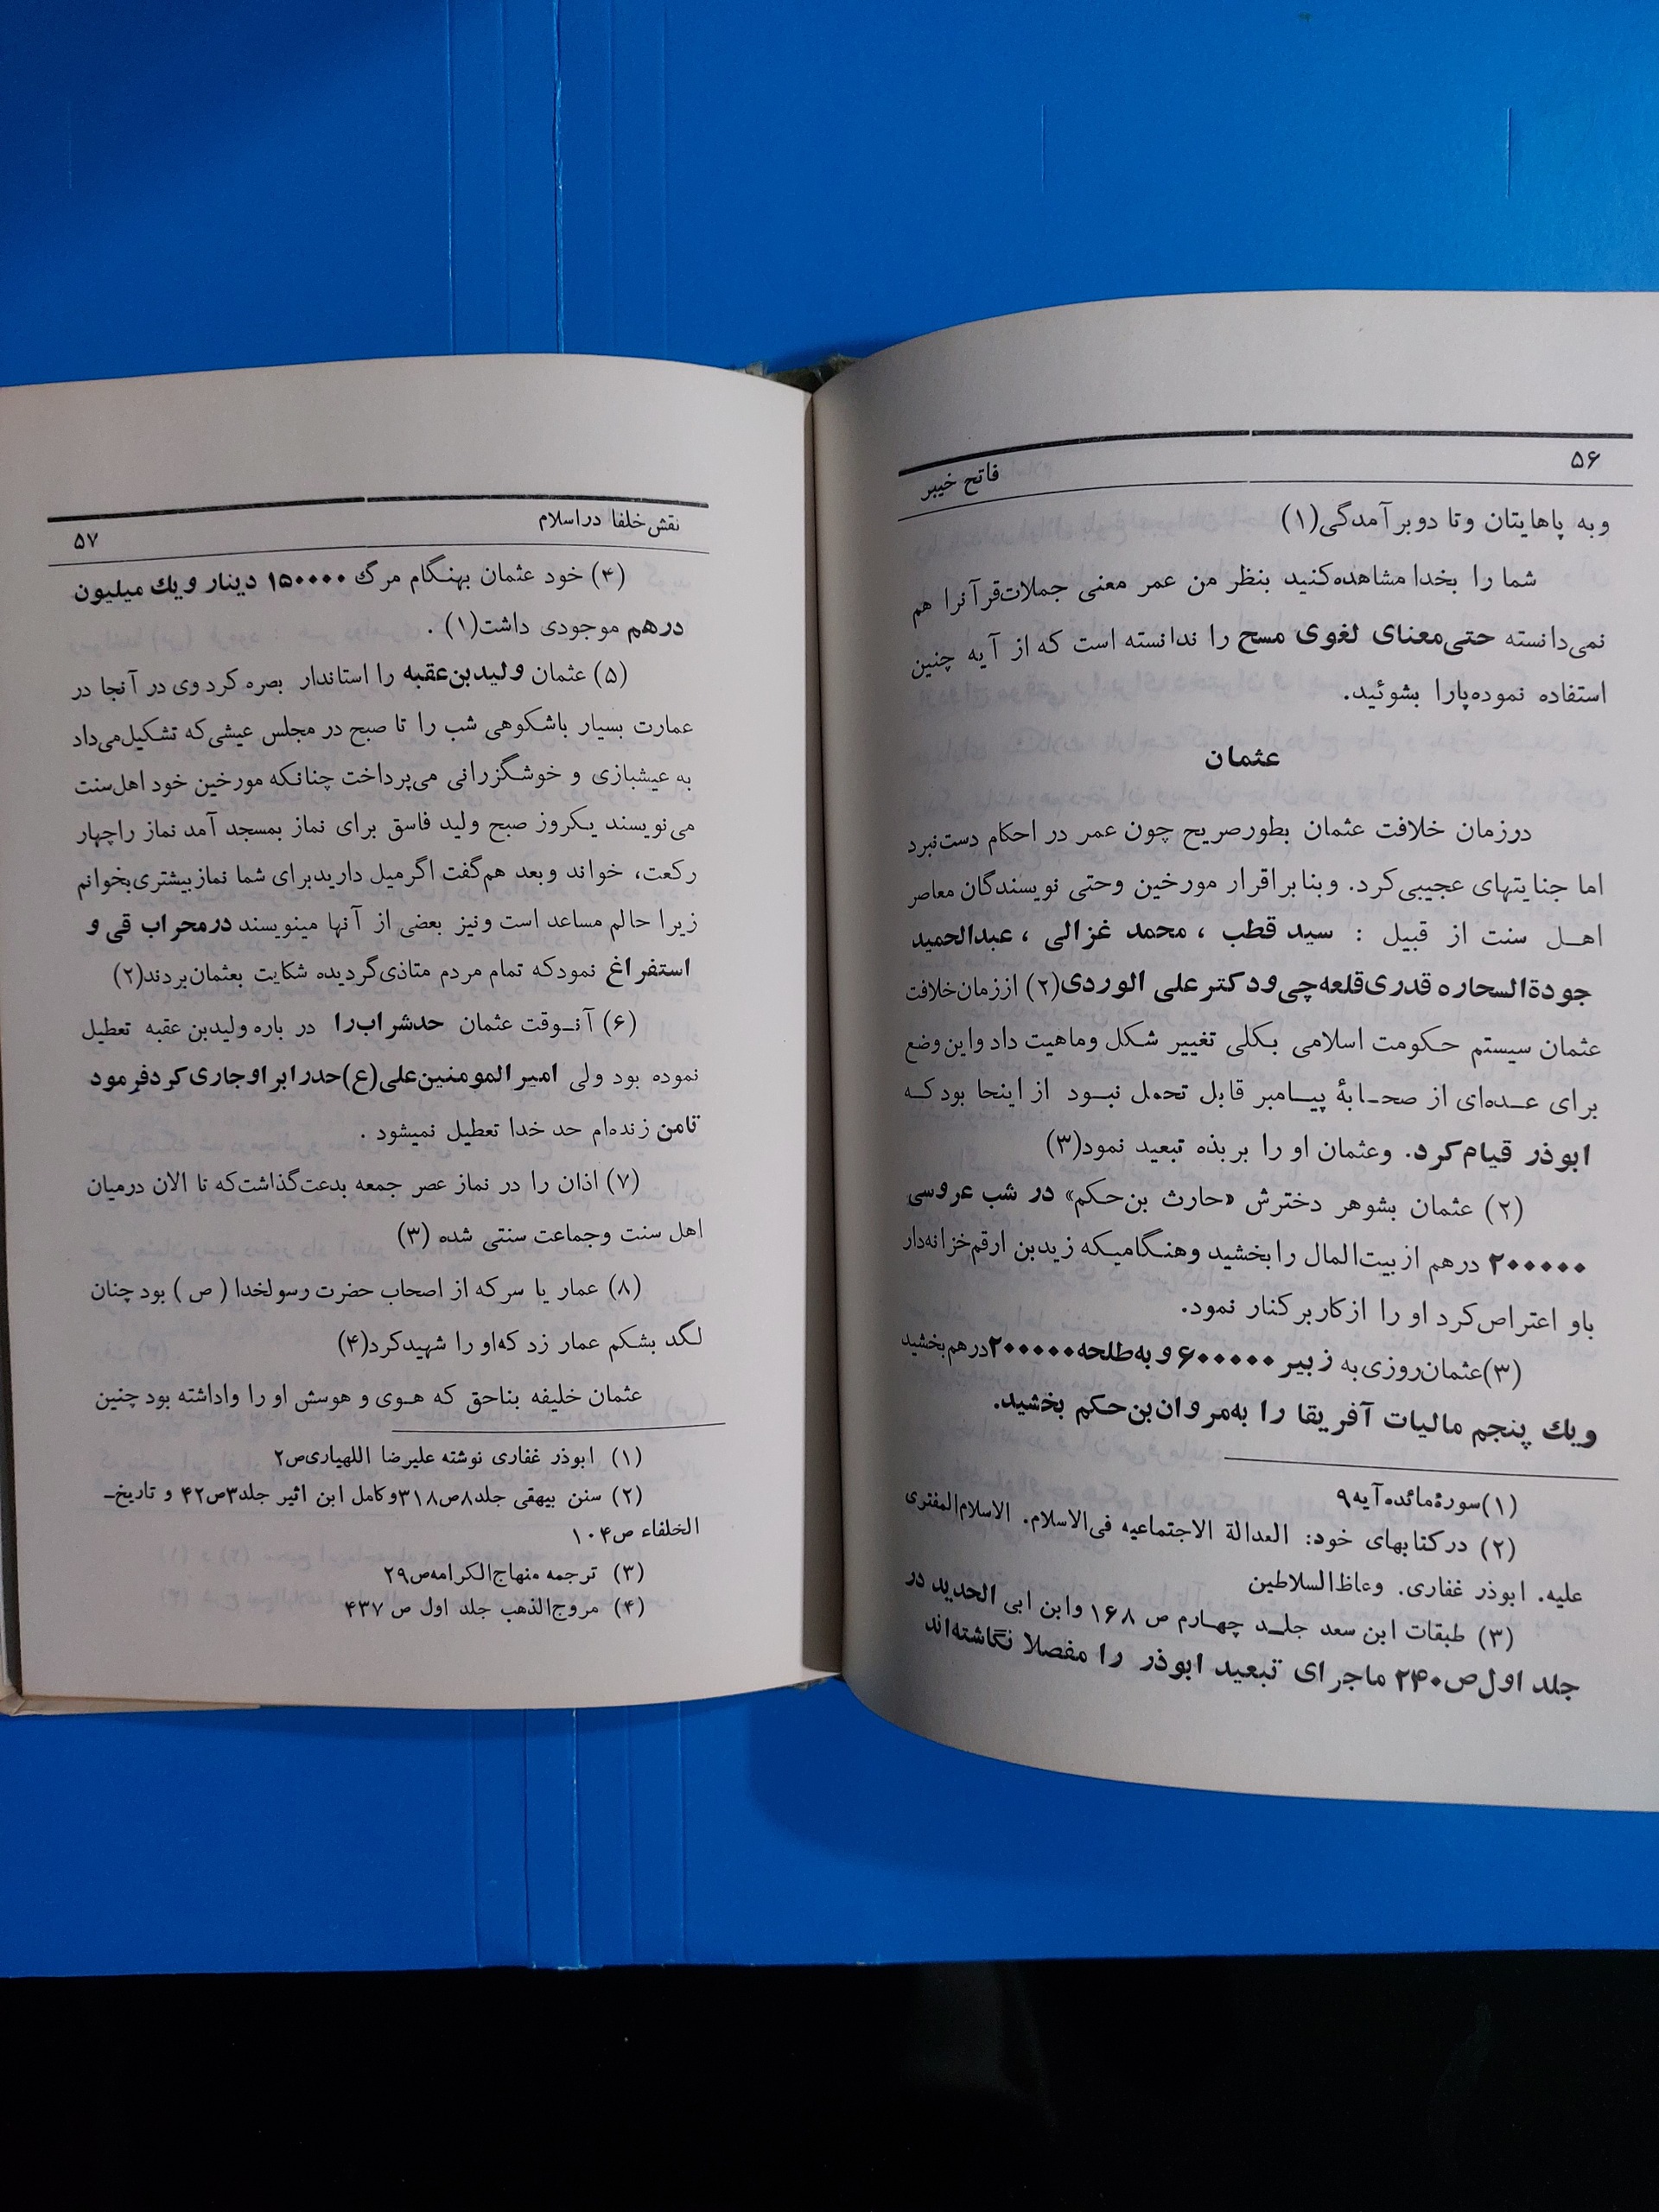 ۵۶
فاتح خیبر
وبه پاهایتان وتا دوبرآمدگی(۱)
شما را بخدا مشاهده‌کنید بنظر من عمر معنی جملات‌قرآنرا هم
نمی‌دانسته حتی‌معنای لغوی مسح را ندانسته است که از آیه چنین
استفاده نموده‌پارا بشوئید.
عثمان
درزمان خلافت عثمان بطورصریح چون عمر در احکام دست‌نبرد
اما جنایتهای عجیبی‌کرد. وبنابراقرار مورخین وحتی نویسندگان معاصر
اهـل سنت از قبیل : سید قطب ، محمد غزالی ، عبدالحمید
جودةالسحاره قدری‌قلعه‌چی‌ودکترعلی الوردی(۲) اززمان‌خلافت
عثمان سیستم حکومت اسلامی بکلی تغییر شکل وماهیت داد واین‌وضع
برای عـده‌ای از صحـابهٔ پیـامبر قابل تحمل نبـود از اینجا بودکـه
ابوذر قیام‌کرد. وعثمان او را بربذه تبعید نمود(۳)
(۲) عثمان بشوهر دخترش «حارث بن‌حکم» در شب عروسی
۲۰۰۰۰۰ درهم ازبیت‌المال را بخشید وهنگامیکه زیدبن ارقم‌خزانه‌دار
باو اعتراص‌کرد او را ازکاربرکنار نمود.
(۳)عثمان‌روزی‌به زبیر ۶۰۰۰۰۰ و به‌طلحه۲۰۰۰۰۰درهم‌بخشید
ویك پنجم مالیات آفریقا را به‌مروان‌بن‌حکم بخشید.
(۱)سورهٔ‌مائده‌آیه۹
(۲) درکتابهای خود: العدالة الاجتماعیه فی‌الاسلام. الاسلام‌المفتری
علیه. ابوذر غفاری. وعاظ‌السلاطین
(۳) طبقات ابن سعد جلـد چهـارم ص ۱۶۸ وابن ابی الحدید در
جلد اول‌ص۲۴۰ ماجرای تبعید ابوذر را مفصلا نگاشته‌اند
نقش‌خلفا دراسلام
۵۷
(۴) خود عثمان بهنگام مرگ ۱۵۰۰۰۰ دینار ویك میلیون
درهم موجودی داشت(۱) .
(۵) عثمان ولیدبن‌عقبه را استاندار بصره کرد وی در آنجا در
عمارت بسیار باشکوهی شب را تا صبح در مجلس عیشی‌که تشکیل‌می‌داد
به عیشبازی و خوشگزرانی می‌پرداخت چنانکه مورخین خود اهل‌سنت
می‌نویسند یکروز صبح ولید فاسق برای نماز بمسجد آمد نماز راچهار
رکعت، خواند وبعد هم‌گفت اگرمیل داریدبرای شما نمازبیشتری‌بخوانم
زیرا حالم مساعد است ونیز بعضی از آنها مینویسند درمحراب قی و
استفراغ نمودکه تمام مردم متاذی‌گردیده شکایت بعثمان‌بردند(۲)
(۶) آنـوقت عثمان حدشراب‌را در باره ولیدبن عقبه تعطیل
نموده بود ولی امیرالمومنین‌علی(ع)حدرابراوجاری‌کردفرمود
تامن زنده‌ام حد خدا تعطیل نمیشود .
(۷) اذان را در نماز عصر جمعه بدعت‌گذاشت‌که تا الان درمیان
اهل سنت وجماعت سنتی شده (۳)
(۸) عمار یا سرکه از اصحاب حضرت رسولخدا ( ص ) بود چنان
لگد بشکم عمار زد که‌او را شهیدکرد(۴)
عثمان خلیفه بناحق که هـوی و هوسش او را واداشته بود چنین
(۱) ابوذر غفاری نوشته علیرضا اللهیاری‌ص۲
(۲) سنن بیهقی جلد۸ص۳۱۸وکامل ابن اثیر جلد۳ص۴۲ و تاریخ‌ـ
الخلفاء ص۱۰۴
(۳) ترجمه منهاج‌الکرامه‌ص۲۹
(۴) مروج‌الذهب جلد اول ص ۴۳۷